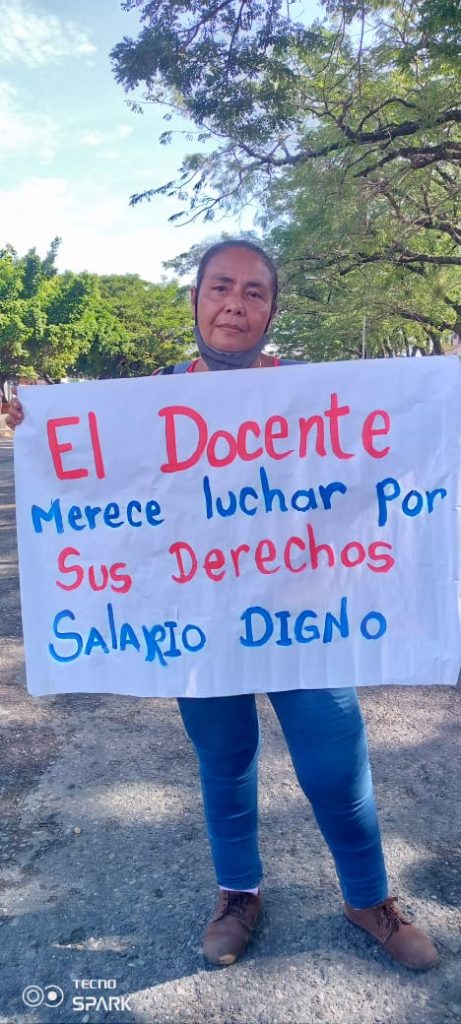 El Docente
Merece luchar por
Sus Derechos
SALARIO DIGNO
TECNO
SPARK